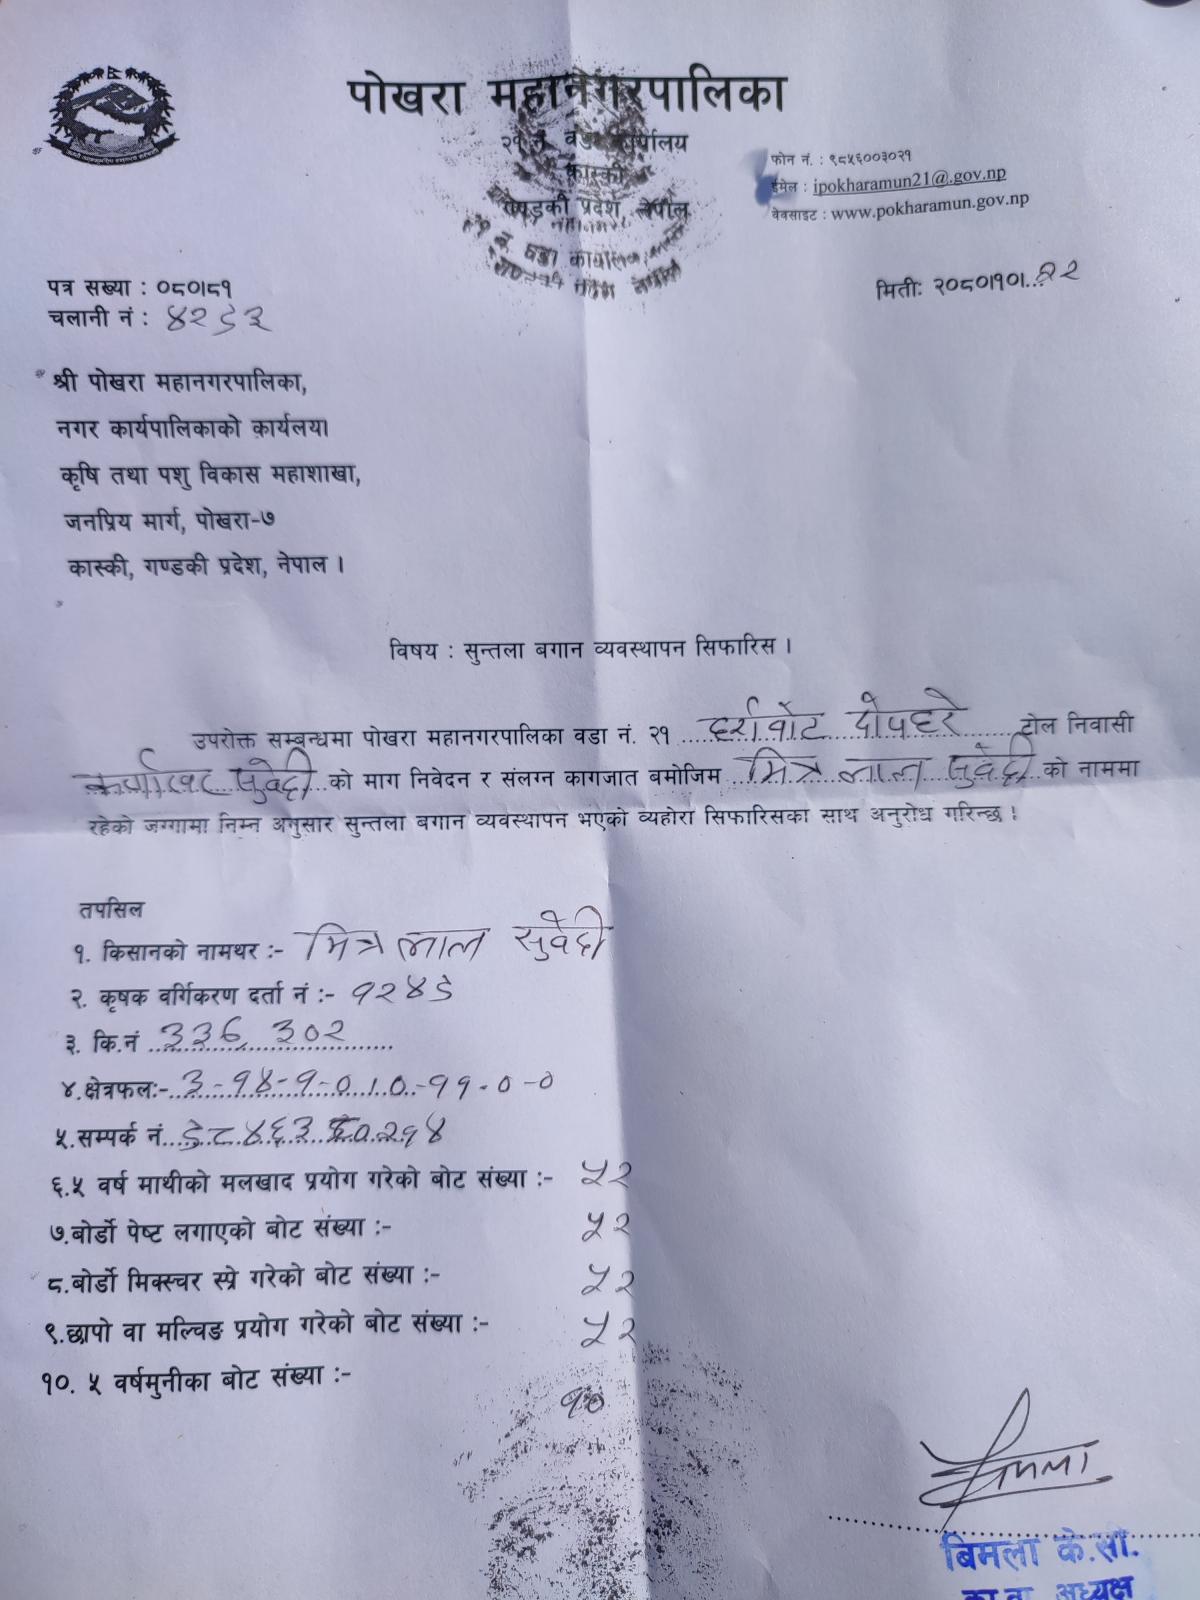 पोखरा महानगरपालिका
२१ नं. वडा कार्यालय
कास्की
गण्डकी प्रदेश, नेपाल
फोन नं. : ९८५६००३०२१
ईमेल : ipokharamun21@.gov.np
वेवसाइट : www.pokharamun.gov.np
पत्र सख्या : ०८०।८१
चलानी नं : ४२९३
मितीः २०८०।१०।.२२
श्री पोखरा महानगरपालिका,
नगर कार्यपालिकाको कार्यलया
कृषि तथा पशु विकास महाशाखा,
जनप्रिय मार्ग, पोखरा-७
कास्की, गण्डकी प्रदेश, नेपाल ।
विषय : सुन्तला बगान व्यवस्थापन सिफारिस ।
उपरोक्त सम्बन्धमा पोखरा महानगरपालिका वडा नं. २१ टोल निवासी
सुवेदी को माग निवेदन र संलग्न कागजात बमोजिम मित्र लाल सुवेदी को नाममा
रहेको जग्गामा निम्न अनुसार सुन्तला बगान व्यवस्थापन भएको व्यहोरा सिफारिसका साथ अनुरोध गरिन्छ ।
तपसिल
१. किसानको नामथर :- मित्र लाल सुवेदी
२. कृषक वर्गिकरण दर्ता नं :- १२४९
३. कि.नं ३३६, ३०२
४.क्षेत्रफलः- ३-१४-१-० । ०-११-०-०
५.सम्पर्क नं.
६.५ वर्ष माथीको मलखाद प्रयोग गरेको बोट संख्या :- ५२
७.बोर्डो पेष्ट लगाएको बोट संख्या :- ५२
८.बोर्डो मिक्स्चर स्प्रे गरेको बोट संख्या :- ५२
९.छापो वा मल्चिङ प्रयोग गरेको बोट संख्या :- ५२
१०. ५ वर्षमुनीका बोट संख्या :- १०
बिमला
बिमला के.सी.
का.वा. अध्यक्ष